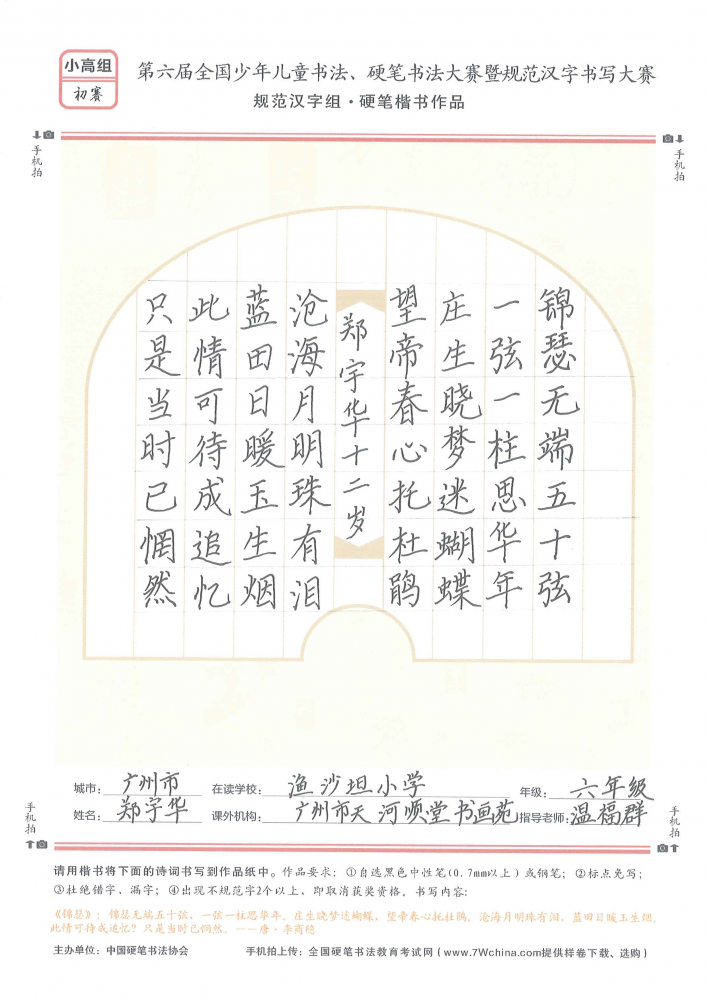 小高组
初赛
第六届全国少年儿童书法、硬笔书法大赛暨规范汉字书写大赛
规范汉字组·硬笔楷书作品
手机拍
手机拍
锦瑟无端五十弦
一弦一柱思华年
庄生晓梦迷蝴蝶
望帝春心托杜鹃
郑宇华十二岁
沧海月明珠有泪
蓝田日暖玉生烟
此情可待成追忆
只是当时已惘然
城市：广州市 在读学校：渔沙坦小学 年级：六年级
姓名：郑宇华 课外机构：广州市天河顺堂书画苑 指导老师：温福群
手机拍
手机拍
请用楷书将下面的诗词书写到作品纸中。作品要求：①自选黑色中性笔(0.7mm以上)或钢笔；②标点免写；
③杜绝错字、漏字；④出现不规范字2个以上，即取消获奖资格。书写内容：
《锦瑟》：锦瑟无端五十弦，一弦一柱思华年。庄生晓梦迷蝴蝶，望帝春心托杜鹃。沧海月明珠有泪，蓝田日暖玉生烟。
此情可待成追忆？只是当时已惘然。——唐·李商隐
主办单位：中国硬笔书法协会 手机拍上传：全国硬笔书法教育考试网(www.7Wchina.com提供样卷下载、选购)